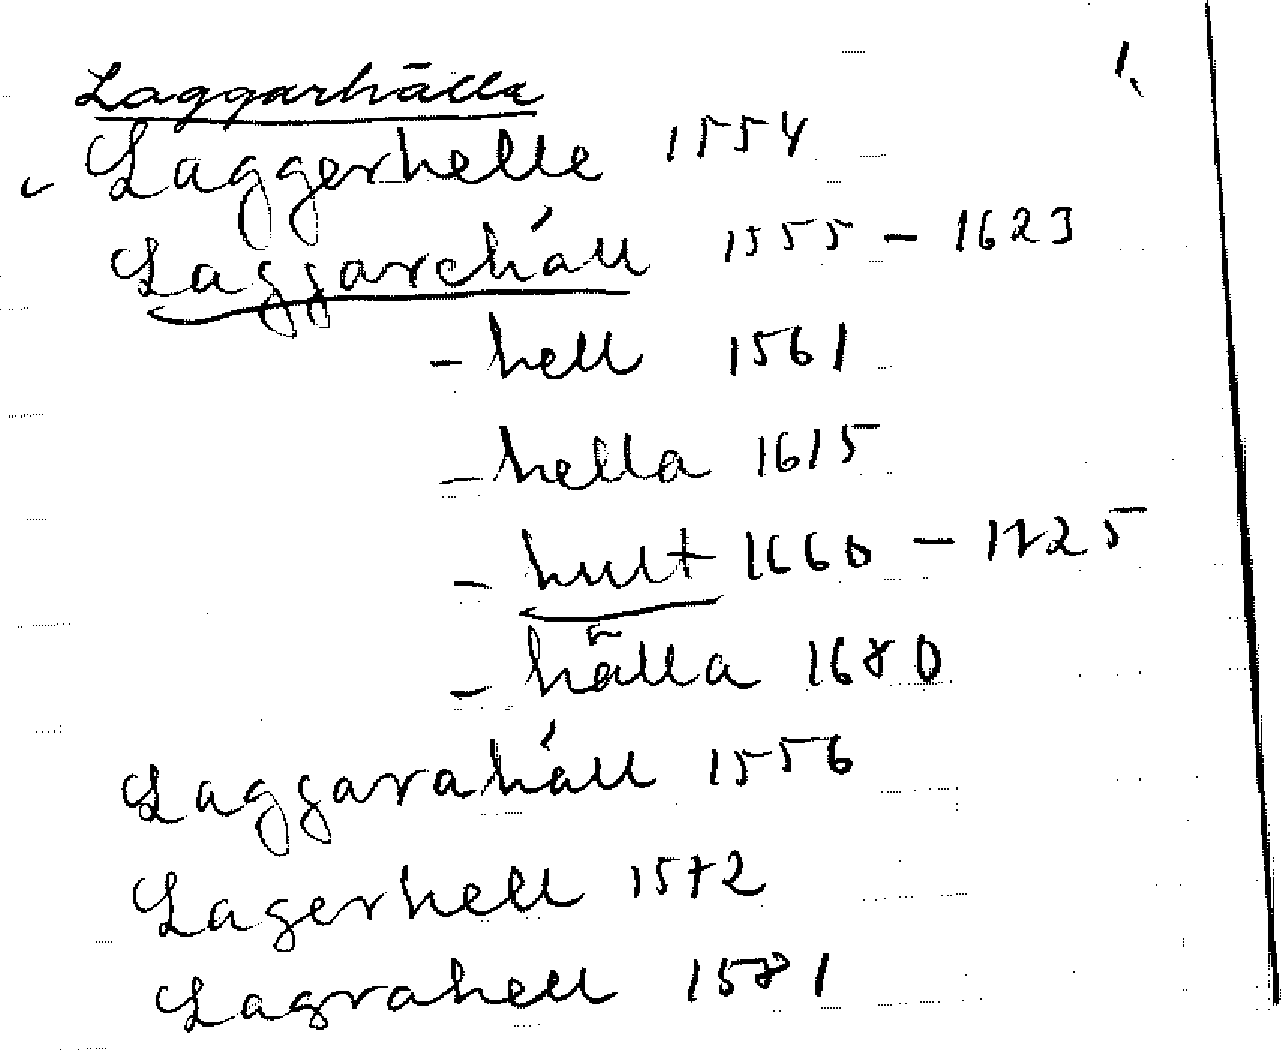 1.
Laggarhälla
Laggerhelle 1554
Laggareháll 1555 - 1623
- hell 1561
- hella 1615
- hult 1660 - 1725
- hälla 1680
Laggaraháll 1556
Lagerhell 1572
Lagrahell 1581